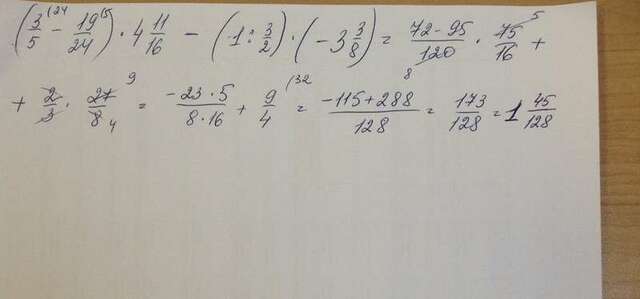 (3/5 (24 - 19/24 (5) · 4 11/16 - (1 : 3/2) · (-3 3/8) = 72-95/120 8 · 75/16 5 +
+ 2/3 · 27/8 9 4 = -23·5/8·16 + 9/4 (32 = -115+288/128 = 173/128 = 1 45/128